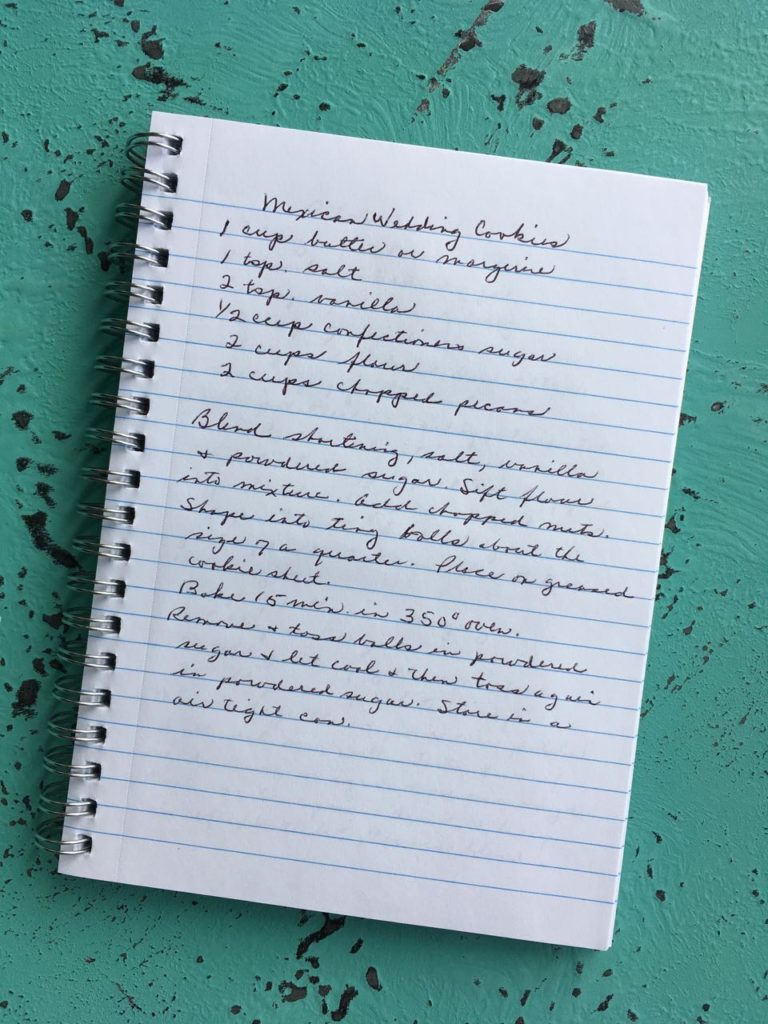 Mexican Wedding Cookies
1 cup butter or margerine
1 tsp. salt
2 tsp. vanilla
1/2 cup confectioners sugar
2 cups flour
2 cups chopped pecans
Blend shortening, salt, vanilla
& powdered sugar. Sift flour
into mixture. Add chopped nuts.
Shape into tiny balls about the
size of a quarter. Place on greased
cookie sheet.
Bake 15 min in 350° oven.
Remove & toss balls in powdered
sugar & let cool & then toss again
in powdered sugar. Store in a
air tight can.